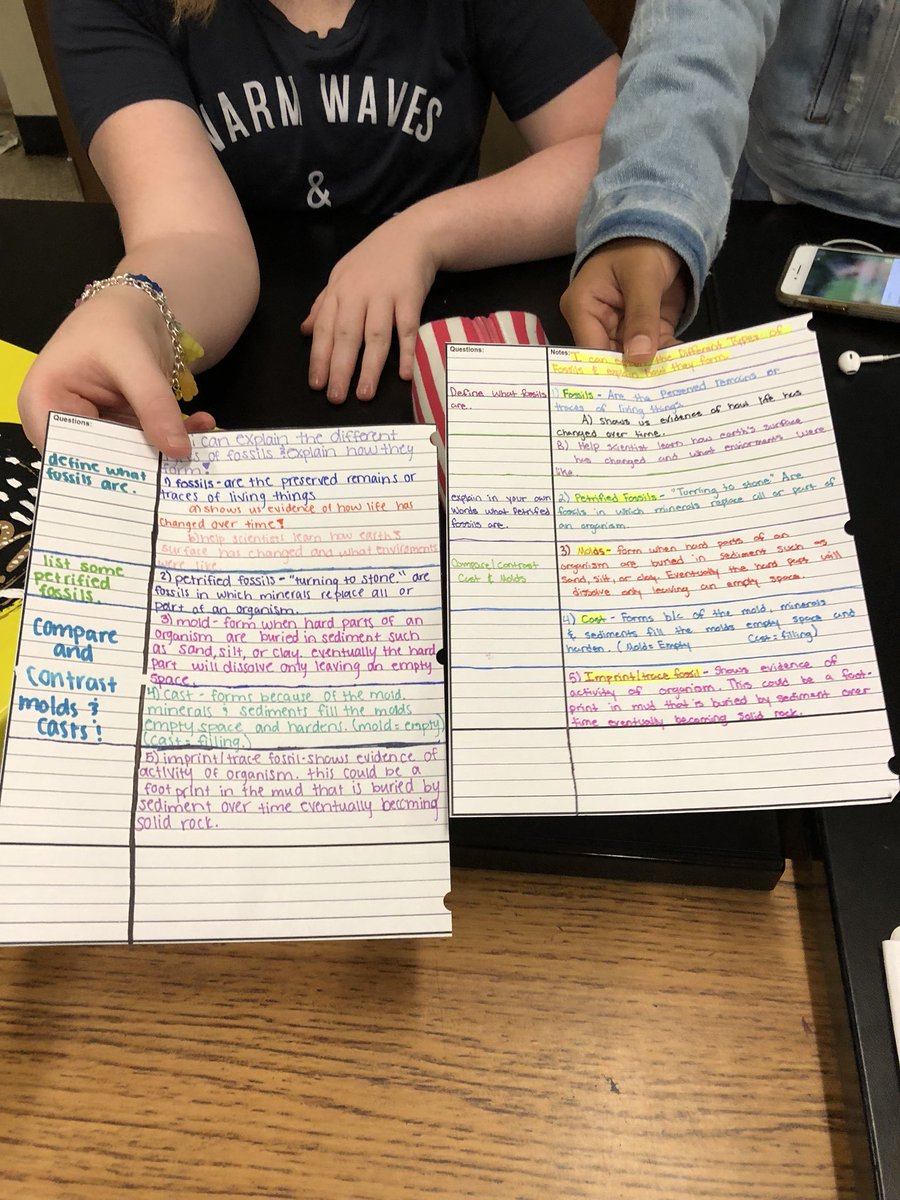 WARM WAVES
&
Questions:
i can explain the different
of fossils & explain how they
form!
define what
fossils are.
1) fossils - are the preserved remains or
traces of living things
a) shows us evidence of how life has
changed over time!
b) help scientists learn how earth's
surface has changed and what enviroments
were like.
list some
petrified
fossils.
2) petrified fossils - "turning to stone." are
fossils in which minerals replace all or
part of an organism.
compare
and
contrast
molds &
casts!
3) mold - form when hard parts of an
organism are buried in sediment such
as sand, silt, or clay. eventually the hard
part will dissolve only leaving an empty
space.
4) cast - forms because of the mold.
minerals & sediments fill the molds
empty space and hardens. (mold = empty)
(cast = filling.)
5) imprint/trace fossil - shows evidence of
activity of organism. this could be a
foot print in the mud that is buried by
sediment over time eventually becoming
solid rock.
Questions:
Notes:
I can the Different Types of
Fossils & explain how they form.
Define what fossils
are..
1) Fossils - Are the Perserved remains or
traces of living things.
A) shows us evidence of how life has
changed over time..
B) Help scientist learn how earth's surface
has changed and what enviorments were
like
explain in your own
words what Petrified
fossils are.
2) Petrified Fossils - "Turning to stone" Are
fossils in which minerals replace all or part of
an organism.
Compare/contrast
Cast & Molds
3) Molds - form when hard parts of an
organism are buried in sediment such as
sand, silt, or clay. Eventually the hard part will
dissolve only leaving an empty space.
4) Cast - Forms b/c of the mold, minerals
& sediments fill the molds empty space and
harden. (Mold = Empty Cast = filling)
5) Imprint/trace fossil - Shows evidence of
activity of organism. This could be a foot-
print in mud that is buried by sediment over
time eventually becoming solid rock.